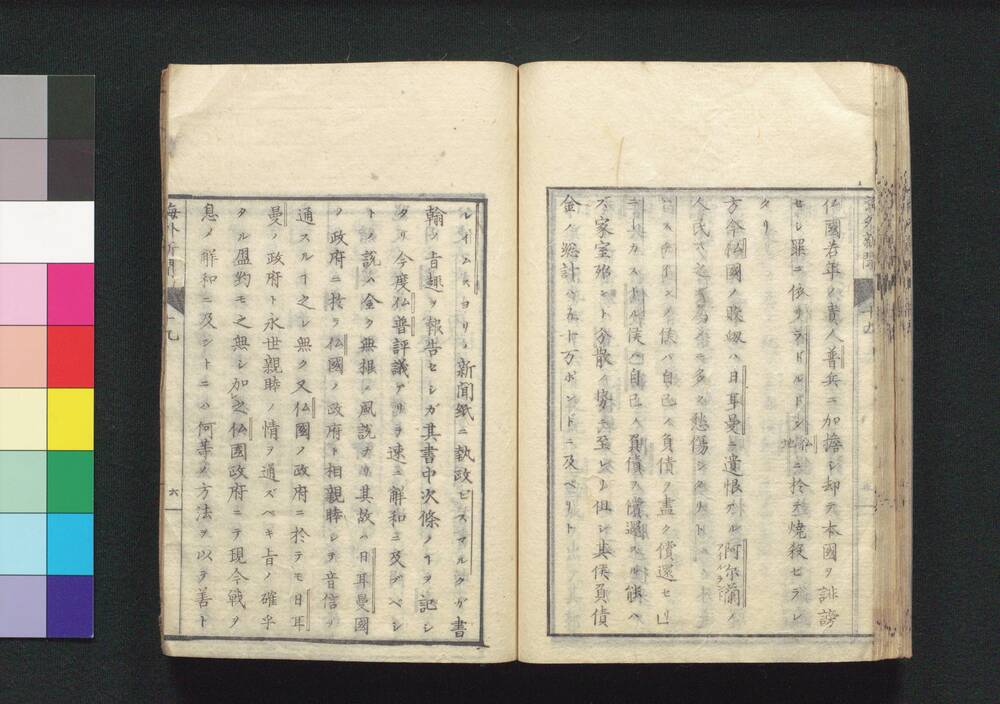 仏國若年ノ貴人普兵ニ加擔シ却テ本國ヲ誹謗
セシ罪ニ依リラドルドン仏地ニ於テ燒殺セラレ
タリ
方今仏國ノ敗衂ハ日耳曼ニ遺恨アル阿尓蘭ノ
人民 之 悲傷シタリト
侯ハ自己ノ負債ヲ盡ク償還セリ
侯ハ自己ノ負債ヲ償還スル能ハ
ズ家室殆ント分散ノ勢ニ至レリ但シ其侯負債
金ノ總計ハ五十万ポンドニ及ベリト
レイムスヨリノ新聞紙ニ執政ビスマルクガ書
翰ノ旨趣ヲ報告セシガ其書中次條ノ ヲ記シ
タリ今度仏普評議アリテ速ニ觧和ニ及ブベシ
トノ説ハ全ク無根ノ風説ナリ其故ハ日耳曼國
ノ政府ニ於テ仏國ノ政府ト相親睦シテ音信ヲ
通スル 之レ無ク又仏國ノ政府ニ於テモ日耳
曼ノ政府ト永世親睦ノ情ヲ通ズベキ旨ノ確乎
タル盟約モ之無シ加之仏國政府ニテ現今戰ヲ
息メ觧和ニ及ントニハ何等ノ方法ヲ以テ善ト
海外新聞
六